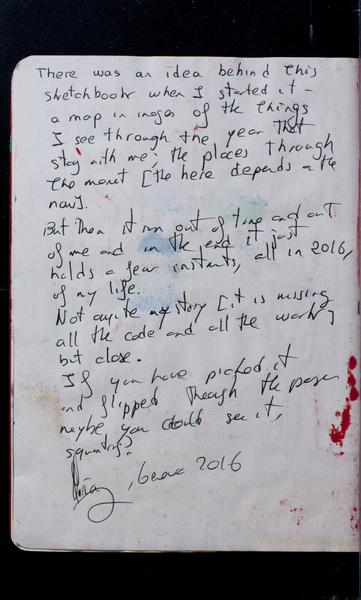 There was an idea behind this
sketchbook when I started it -
a map in images of the things
I see through the year that
stay with me; the places through
the moment [the here depends on the
now].
But then it run out of time and out
of me and in the end it just
holds a few instants, all in 2016,
of my life.
Not quite my story [it is missing
all the code and all the work]
but close.
If you have picked it
and flipped through the pages
maybe you could see it,
squinting?
, 2016